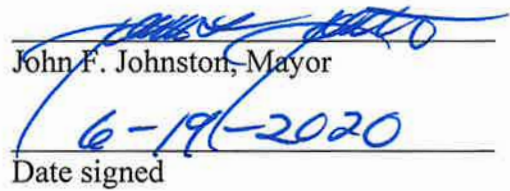 John F. Johnston, Mayor
6-19-2020
Date signed